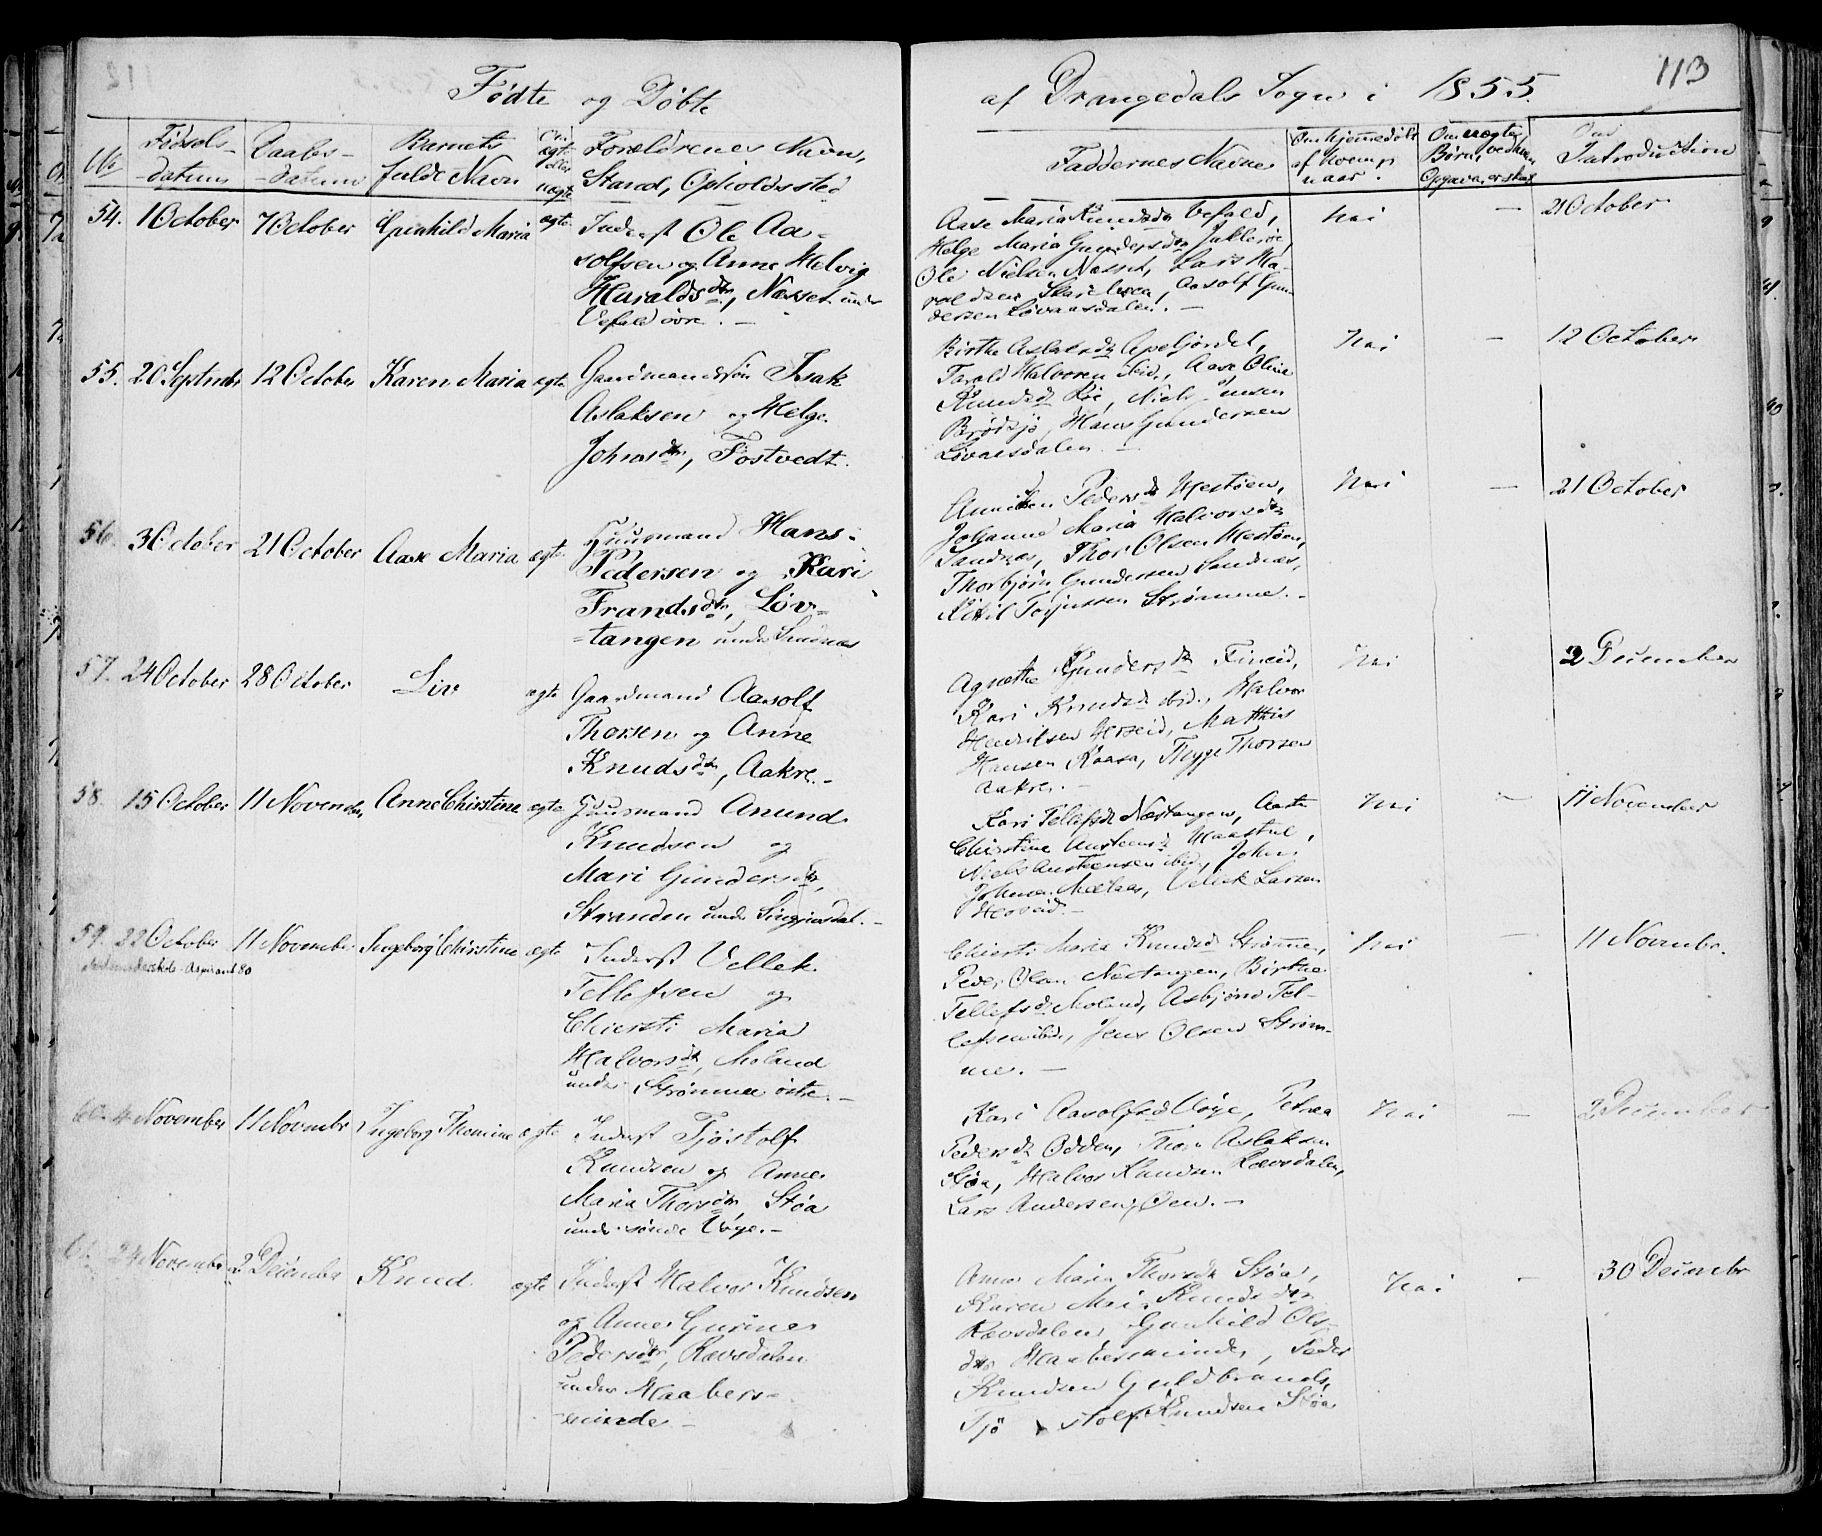 113
Födte og Döbte
af Drangedals Sogn i 1855.
No
Födsels-
datum
Daabs-
datum
Barnets
fulde Navn
Om
ægte
eller
uægte
Forældrenes Navn,
Stand, Opholdssted
Faddernes Navne
Om hjemmedöbt
af hvem,
naar.
Om uægte
Børn, ved hvem
Om
Introduction
54. 1 October 7 October Gunhild Maria ægte
Inderst Ole Aa-
solfsen og Anne Helvig
Haraldsdtr, Næsset under
Vefald övre. -
Aase Maria Knudsdtr Vefald,
Helge Maria Gundersdtr
Ole Nielsen Næsset, Lars Ha-
raldsen Aasolf Gun-
dersen Lövaasdalen. -
Nei - 21 October
55. 20 Septmbr 12 October Karen Maria ægte
Gaardmandssön Isak
Aslaksen og Helge
Johnsdtr, Föstvedt.
Birthe Aslaksdtr
Tarald Halvorsen ibid., Aase Oline
Knudsdtr Niels
Brödsjö, Hans Gundersen
Lövaasdalen. -
Nei - 12 October
56. 3 October 21 October Aase Maria ægte
Huusmand Hans
Pedersen og Kari
Frandsdtr, Löv-
tangen under Sandnæs
Pedersdtr Mestöen,
Johanne Maria Halvorsdtr
Sandnæs, Thor Olsen Mestöen,
Thorbjörn Gundersen Sandnæs,
Kittil Strömme. -
Nei - 21 October
57. 24 October 28 October Liv ægte
Gaardmand Aasolf
Thorsen og Anne
Knudsdtr, Aakre. -
Agnethe Gundersdtr
Kari Knudsdtr ibid., Halvor
Henriksen Matthis
Hansen Kaasa, Thygge Thorsen
Aakre. -
Nei 2 December
58. 15 October 11 November Anne Chirstine ægte
Huusmand Anund
Knudsen og
Mari Gundersdtr,
Stranden under -
Kari Tellefsdtr Næstangen, Aaste
Chirstine Austensdtr
Niels Austensen ibid., John
Vellek Larsen
Nei - 11 November
59. 22 October 11 November Ingeborg Chirstine ægte
Aspirant 80
Inderst Vellek
Tellefsen og
Chiersti Maria
Halvorsdtr, Moland
under Strömme östre. -
Chiersti Maria Knudsdtr Strömme,
Peder Olsen Næstangen, Birthe
Tellefsdtr Moland, Asbjörn Tel-
lefsen ibid., Jens Olsen Ström-
me. -
Nei - 11 Novembr.
60. 4 November 11 Novembr Ingeborg Thomine ægte
Inderst Tjöstolf
Knudsen og Anne
Maria Thorsdtr, Stöa
under söndre Voje. -
Kari Aasolfsdtr Voje, Petrea
Pedersdtr Odden, Thor Aslaksen
Stöa, Halvor Knudsen Rævsdalen,
Lars Andersen, Öen. -
Nei - 2 December
61. 24 Novembr 2 December Knud ægte
Inderst Halvor Knudsen
og Anne Gurine
Pedersdtr, Rævsdalen
under Haabers-
minde. -
Anne Maria Thorsdtr Stöa,
Karen Mari Knudsdtr
Rævsdalen, Gunhild Ols-
dtr Haabersminde, Peder
Knudsen Guldbrands,
Tjöstolf Knudsen Stöa
Nei - 30 Decembr